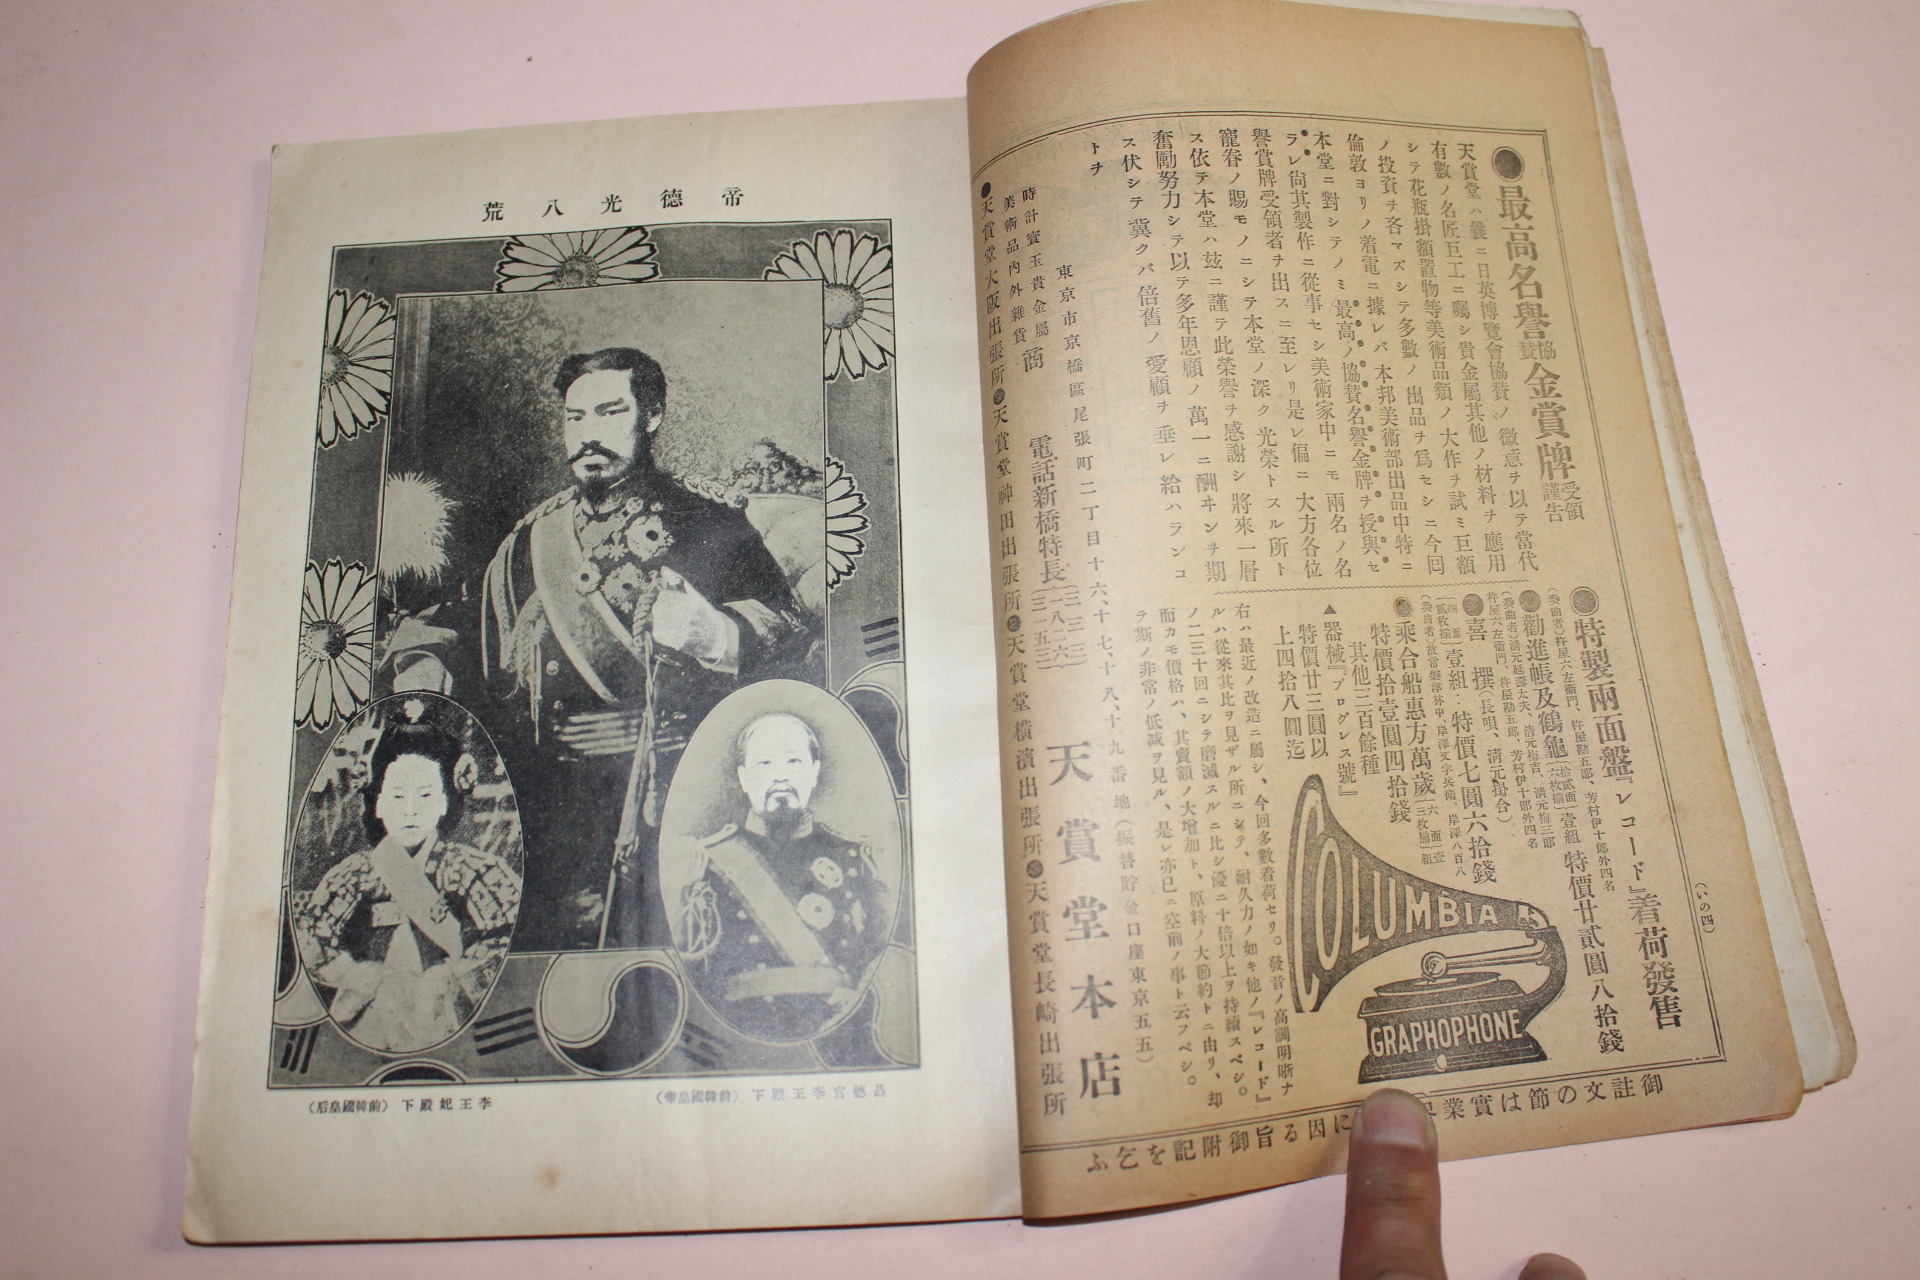 帝德光八荒
昌德宮李王殿下(前韓國皇帝)
李王妃殿下(前韓國皇后)
(いの四)
●最高名譽協贊金賞牌受領謹告
天賞堂ハ曩ニ日英博覽會協贊ノ微意ヲ以テ當代
有數ノ名匠巨工ニ囑シ貴金屬其他ノ材料ヲ應用
シテ花瓶掛額置物等美術品類ノ大作ヲ試ミ巨額
ノ投資ヲ吝マズシテ多數ノ出品ヲ爲セシニ今回
倫敦ヨリノ着電ニ據レバ本邦美術部出品中特ニ
本堂ニ對シテノミ最高ノ協贊名譽金牌ヲ授與セ
ラレ尙其製作ニ從事セシ美術家中ニモ兩名ノ名
譽賞牌受領者ヲ出スニ至レリ是レ偏ニ大方各位
寵眷ノ賜モノニシテ本堂ノ深ク光榮トスル所ト
ス依テ本堂ハ玆ニ謹テ此榮譽ヲ感謝シ將來一層
奮勵努力シテ以テ多年恩顧ノ萬一ニ酬ヰンヲ期
ス伏シテ冀クバ倍舊ノ愛顧ヲ垂レ給ハランコ
トヲ
●特製兩面盤『レコード』着荷發售
(奏曲者)杵屋六左衞門、杵屋勘五郎、芳村伊十郎外四名
●勸進帳及鶴龜(拾貳面六枚揃)壹組特價廿貳圓八拾錢
(奏曲者)淸元延壽太夫、淸元梅吉、淸元梅三郎
杵屋六左衞門、杵屋勘五郎、芳村伊十郎外四名
●喜撰(長唄、淸元掛合)
(四面貳枚揃)壹組‥特價七圓六拾錢
(奏曲者)故常磐津林中、岸澤文字兵衞、岸澤八百八
●乘合船惠方萬歲(六面三枚揃)壹組
特價拾壹圓四拾錢
其他三百餘種
▲器械『プログレス號』
特價廿三圓以
上四拾八圓迄
COLUMBIA
GRAPHOPHONE
右ハ最近ノ改造ニ屬シ、今回多數着荷セリ。發音ノ高調明晰ナ
ルハ從來其比ヲ見ザル所ニシテ、耐久力ノ如キ他ノ『レコード』
ノ二三十回ニシテ磨滅スルニ比シ優ニ十倍以上ヲ持續スベシ。
而カモ價格ハ、其賣額ノ大增加ト、原料ノ大節約トニ由リ、却
テ斯ノ非常ノ低減ヲ見ル、是レ亦已ニ空前ノ事ト云フベシ。
東京市京橋區尾張町二丁目十六、十七、十八、十九番地(振替貯金口座東京五五)
時計寶玉貴金屬
美術品內外雜貨
商
電話新橋特長
天賞堂本店
●天賞堂大阪出張所●天賞堂神田出張所●天賞堂橫濱出張所●天賞堂長崎出張所
御註文の節は實業
に因る旨御附記を乞ふ